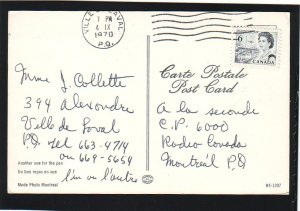 VILLE DE LAVAL
1 PM
6 IX
1970
P.Q.
6
CANADA
Carte Postale
Post Card
Mme J. Collette
394 Alexandre
Ville de Laval
P.Q. Tel 663-4714
ou 669-5654
l'un ou l'autre
A la seconde
C.P. 6000
Radio Canada
Montréal P.Q
Another one for the pen
Un bon repas en vue
Made Photo Montreal
MF-1207